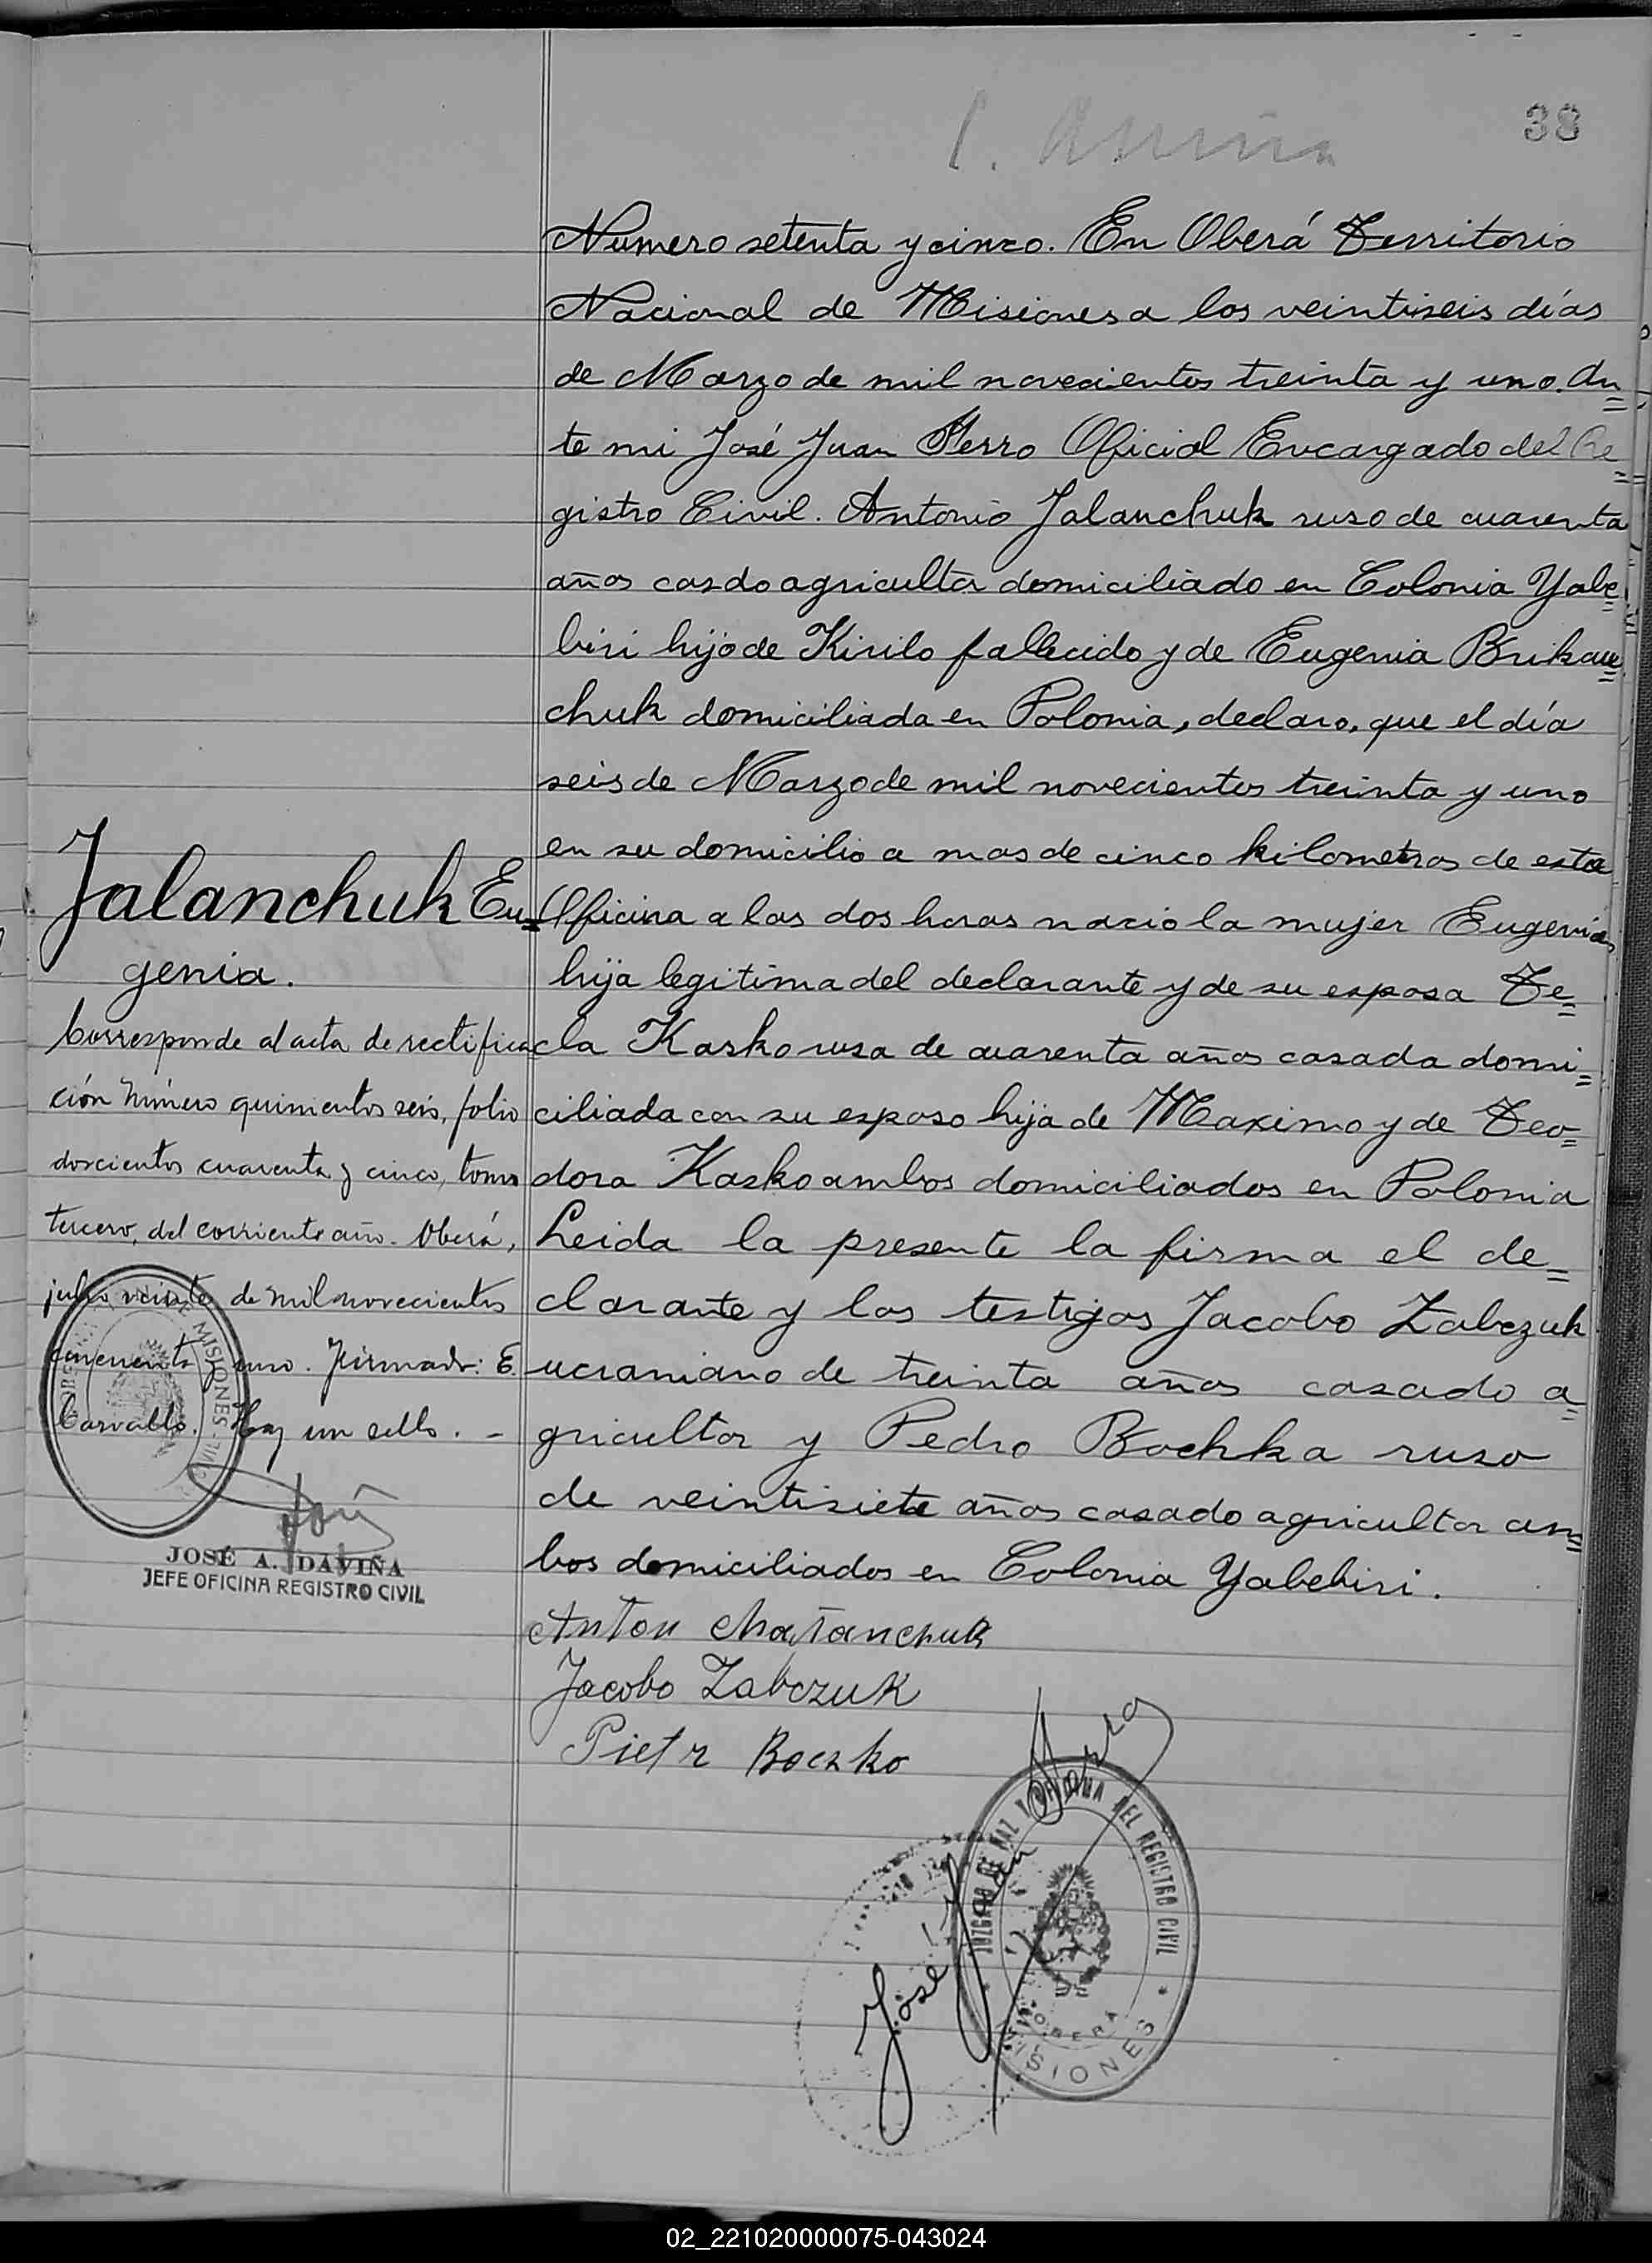 38
Numero setenta y cinco. En Oberá Territorio
Nacional de Misiones a los veintiseis días
de Marzo de mil novecientos treinta y uno. An=
te mi José Juan Perro Oficial Encargado del Re=
gistro Civil. Antonio Jalanchuk ruso de cuarenta
años casdo agricultor domiciliado en Colonia Yabe=
biri hijo de Kirilo fallecido y de Eugenia
chuk domiciliada en Polonia, declaro, que el día
seis de Marzo de mil novecientos treinta y uno
en su domicilio a mas de cinco kilometros de esta
Oficina a las dos horas nacio la mujer Eugenia
hija legitima del declarante y de su esposa Te=
cla Kasko rusa de cuarenta años casada domi=
ciliada con su esposo hija de Maximo y de Teo=
dora Kasko ambos domiciliados en Polonia
Leida la presente la firma el de=
clarante y los testigos Jacobo Zabczuk
ucraniano de treinta años casado a=
gricultor y Pedro Bochka ruso
de veintisiete años casado agricultor am=
bos domiciliados en Colonia Yabebiri.
Anton
Jacobo Zabczuk
Pietr Boczko
José Juan
JUZGADO DE PAZ Y OFICINA DEL REGISTRO CIVIL
OBERÁ
MISIONES
Jalanchuk Eu=
genia.
Corresponde al acta de rectifica
ción número quinientos seis, folio
doscientos cuarenta y cinco, tomo
tercero, del corriente año. Oberá,
julio veinte de mil novecientos
cincuenta y uno. Firmado: E.
Carvallo. Hay un sello. -
MISIONES
JOSÉ A. DAVIÑA
JEFE OFICINA REGISTRO CIVIL
02_221020000075-043024